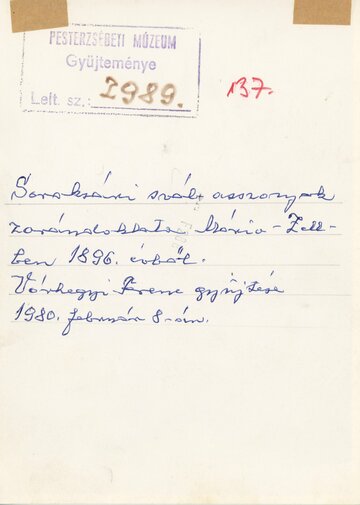 PESTERZSÉBETI MÚZEUM
Gyüjteménye
Lelt. sz.: 2989.
137.
Soroksári sváb asszonyok
zarándoklata Mária-Zell-
ben 1896. évből.
Várhegyi Ferenc gyűjtése
1980. február 8-án.